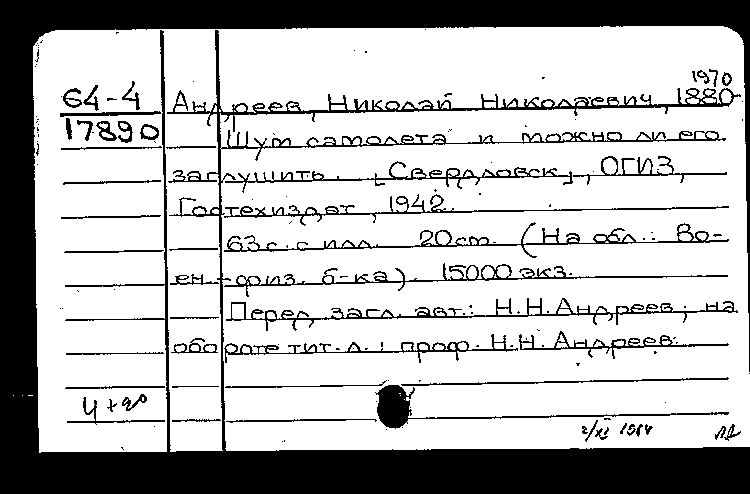 1970
64-4 Андреев, Николай Николаевич, 1880-
17890 Шум самолета и можно ли его
заглушить. [Свердловск], ОГИЗ,
Гостехиздат, 1942.
63 с. с илл. 20 см. (На обл.: Во-
ен.-физ. б-ка). 15000 экз.
Перед загл. авт.: Н.Н. Андреев; на
обороте тит. л.: проф. Н.Н. Андреев.
2/XI 1964